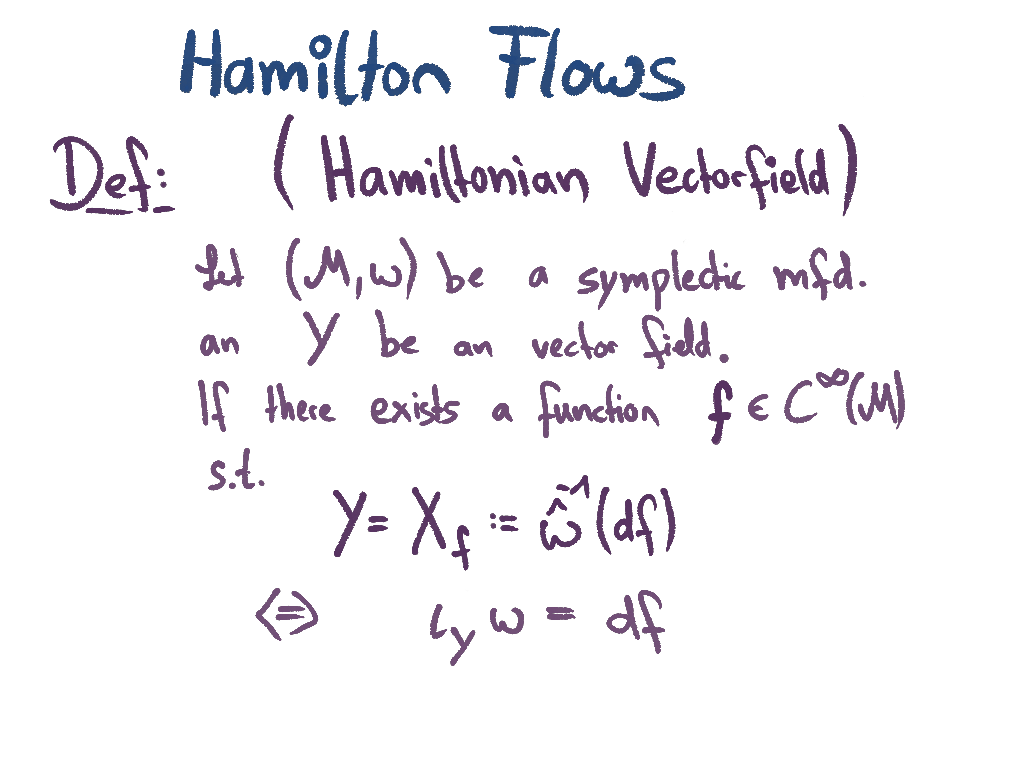 Hamilton Flows
Def: (Hamiltonian Vectorfield)
Let (M, ω) be a symplectic mfd.
an Y be an vector field.
If there exists a function f ∈ C^∞(M)
s.t.
Y = X_f := ω̂^-1(df)
⇔ ι_Y ω = df